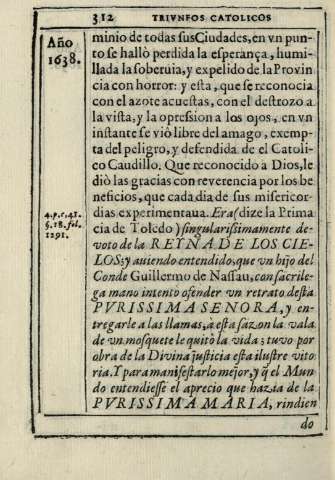 312 TRIVNFOS CATOLICOS
Año
1638.
minio de todas sus Ciudades, en vn pun-
to se hallò perdida la esperança, humi-
llada la soberuia, y expelido de la Provin
cia con horror: y esta, que se reconocia
con el azote acuestas, con el destrozo a
la vista, y la opression a los ojos, en vn
instante se viò libre del amago, exemp-
ta del peligro, y defendida de el Catoli-
co Caudillo. Que reconocido a Dios, le
diò las gracias con reverencia por los be
neficios, que cada dia de sus misericor-
dias experimentaua. Era (dize la Prima
4.p.c.41.
§.18.fol.
1291.
cia de Toledo) singularissimamente de-
voto de la REYNA DE LOS CIE-
LOS; y auiendo entendido, que vn hijo del
Conde Guillermo de Nassau, con sacrile-
ga mano intentò ofender vn retrato desta
PVRISSIMA SEÑORA, y en-
tregarle a las llamas, a esta sazon la vala
de vn mosquete le quitò la vida; tuvo por
obra de la Divina justicia esta ilustre vito
ria. Y para manifestarlo mejor, y q̃ el Mun
do entendiesse el aprecio que hazia de la
PVRISSIMA MARIA, rindien
do